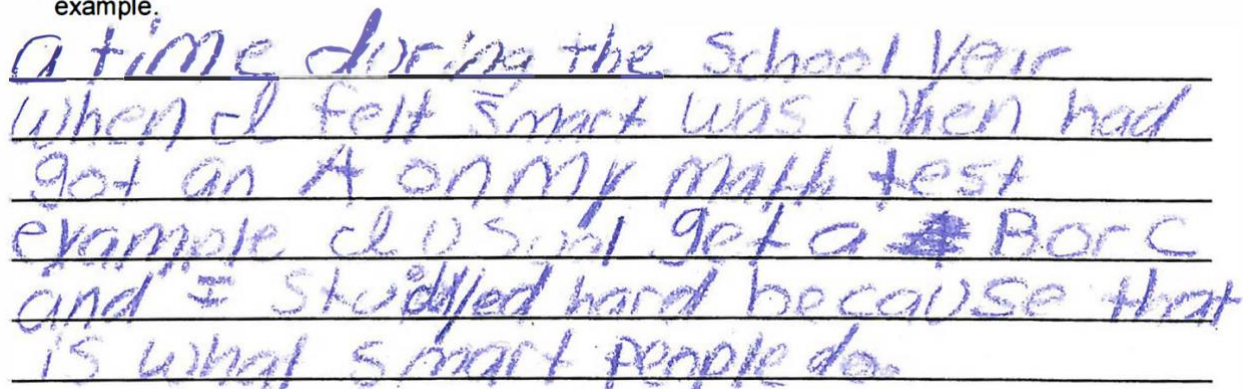 example.
a time during the School Year
when I felt smart was when had
got an A on my math test
example I usual get a B or C
and I studyed hard because that
is what smart people do.